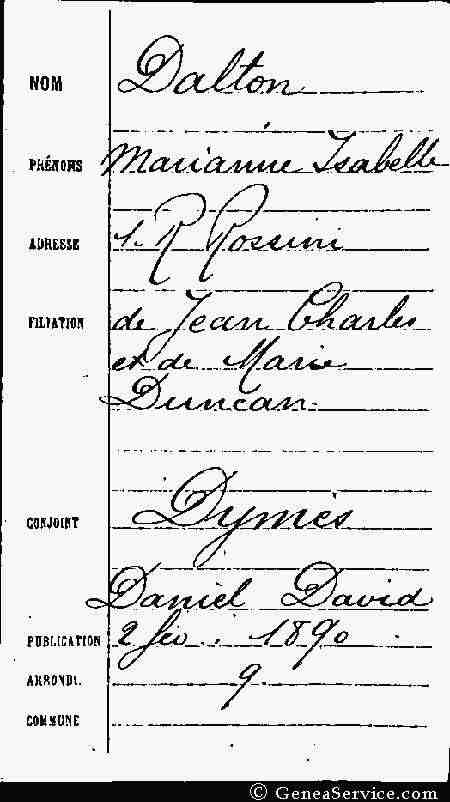 NOM Dalton
PRÉNOMS Marianne Isabelle
ADRESSE 1. R Rossini
FILIATION de Jean Charles
et de Marie
Duncan
CONJOINT Dymes
Daniel David
PUBLICATION 2 fev. 1890
ARRONDt. 9
COMMUNE
© GeneaService.com